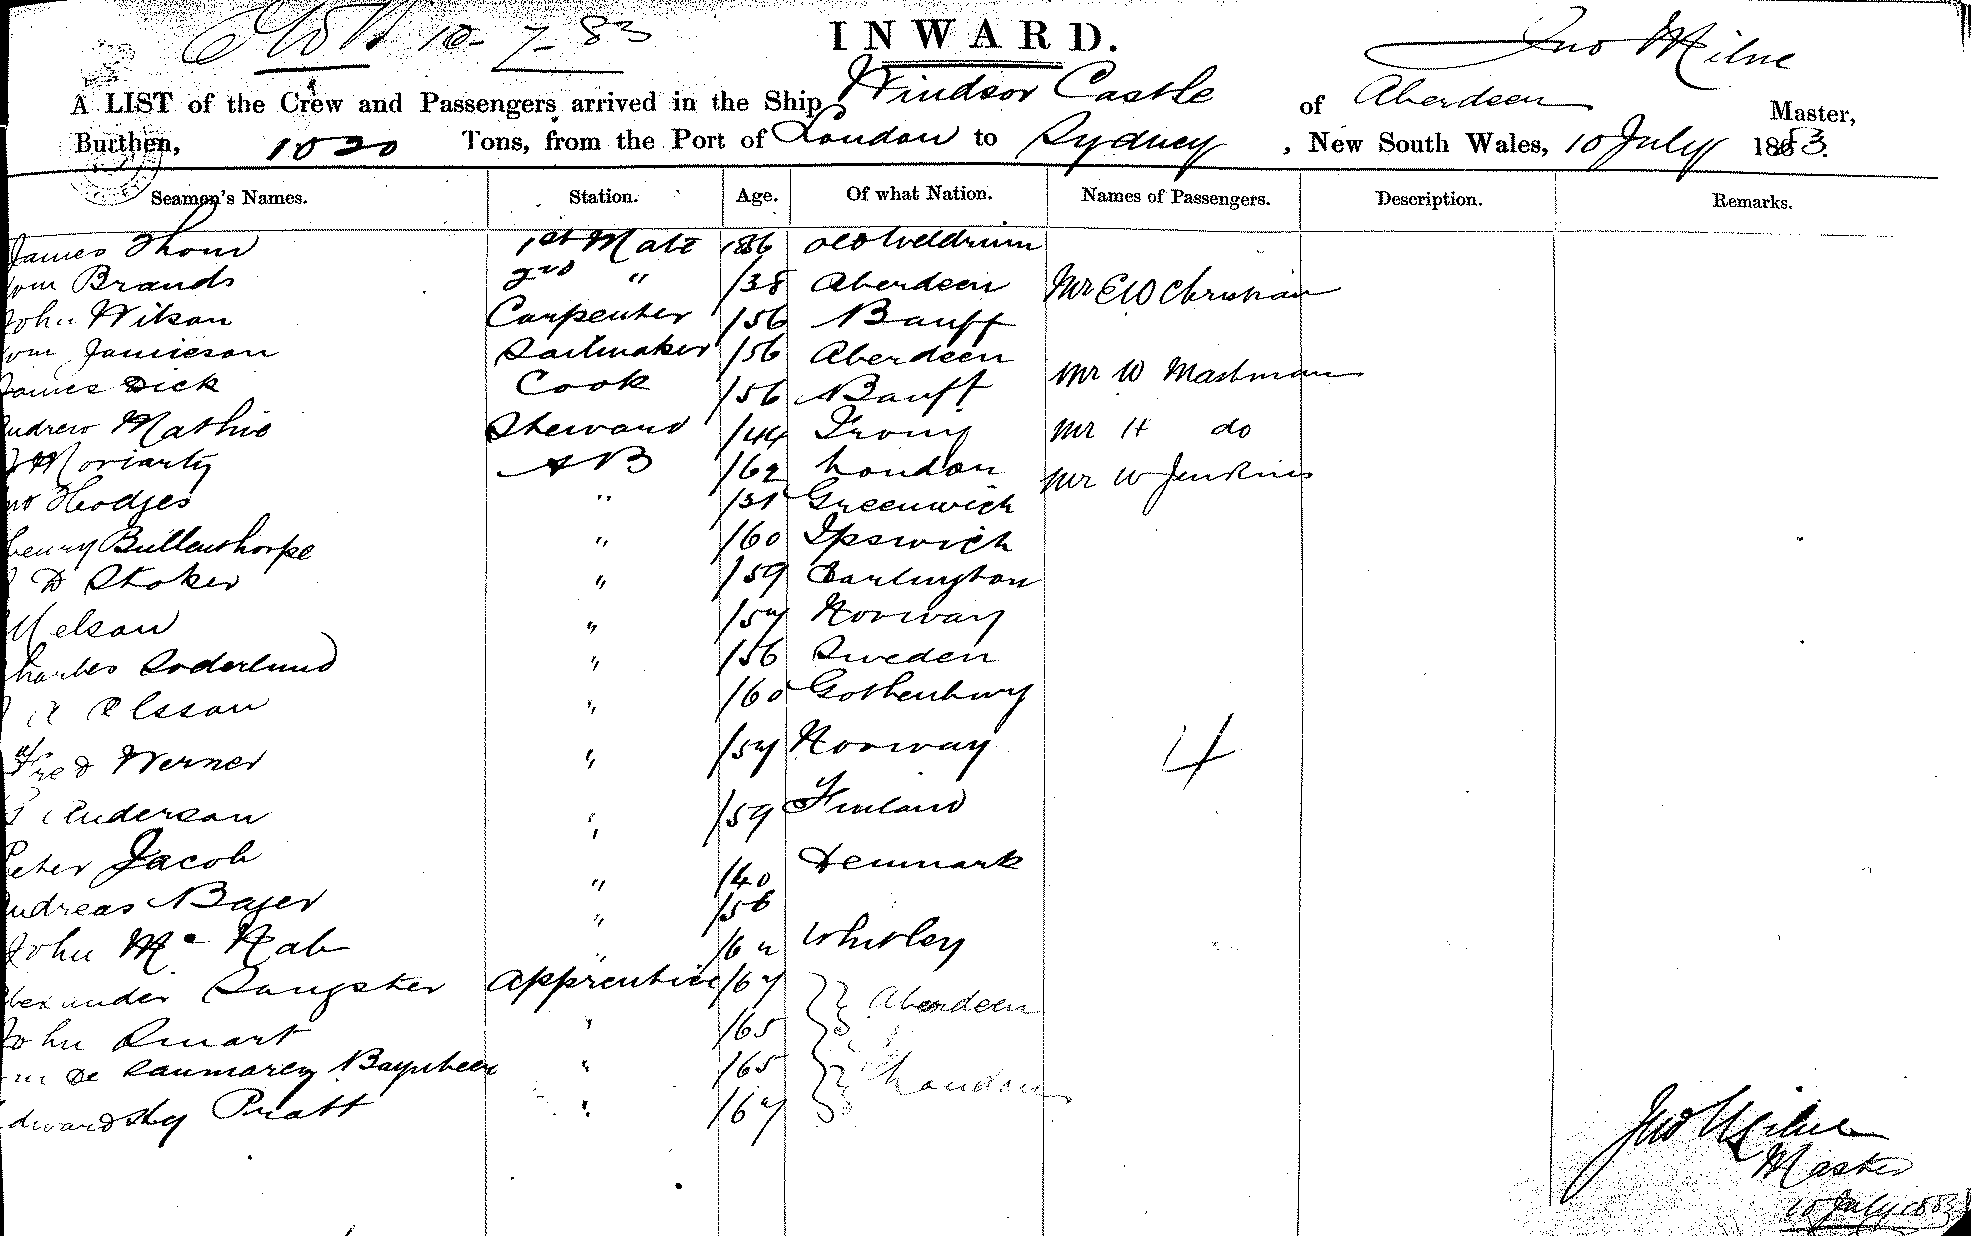 10-7-83
INWARD.
Jno Milne
A LIST of the Crew and Passengers arrived in the Ship Windsor Castle of Aberdeen Master,
Burthen, 1020 Tons, from the Port of London to Sydney, New South Wales, 10 July 1883.
Seamen's Names. Station. Age. Of what Nation. Names of Passengers. Description. Remarks.
James Thom 1st Mate 36 Old Meldrum
Wm Brands 2nd " /38 Aberdeen Mr E W Christian
John Wilson Carpenter /56 Banff
Wm Jamieson Sailmaker /56 Aberdeen Mr W Mastman
James Dick Cook /56 Banff
Andrew Mathie Steward /44 Mr H do
Moriarty AB /62 London Mr W Jenkins
Hodges " /31 Greenwich
Henry Bullenthorpe " /60 Ipswich
D Stoker " /59 Darlington
Nelson " /57 Norway
Charles Soderlund " /56 Sweden
Olsson " /60 Gothenburg
Fred Werner " /57 Norway 4
Anderson " /59 Finland
Peter Jacob " /40 Denmark
Andreas Bajer " /56
John McNab " /62 Whitley
Alexander Sangster Apprentice /67 } Aberdeen
John Smart " /65 }
Wm De Saumarez Bayntun " /65 } London
Edward Hy Pratt " /67 }
Jno Milne
Master
10 July 1883